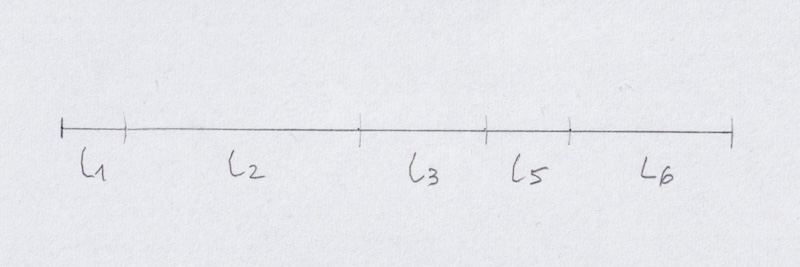 l1 l2 l3 l5 L6